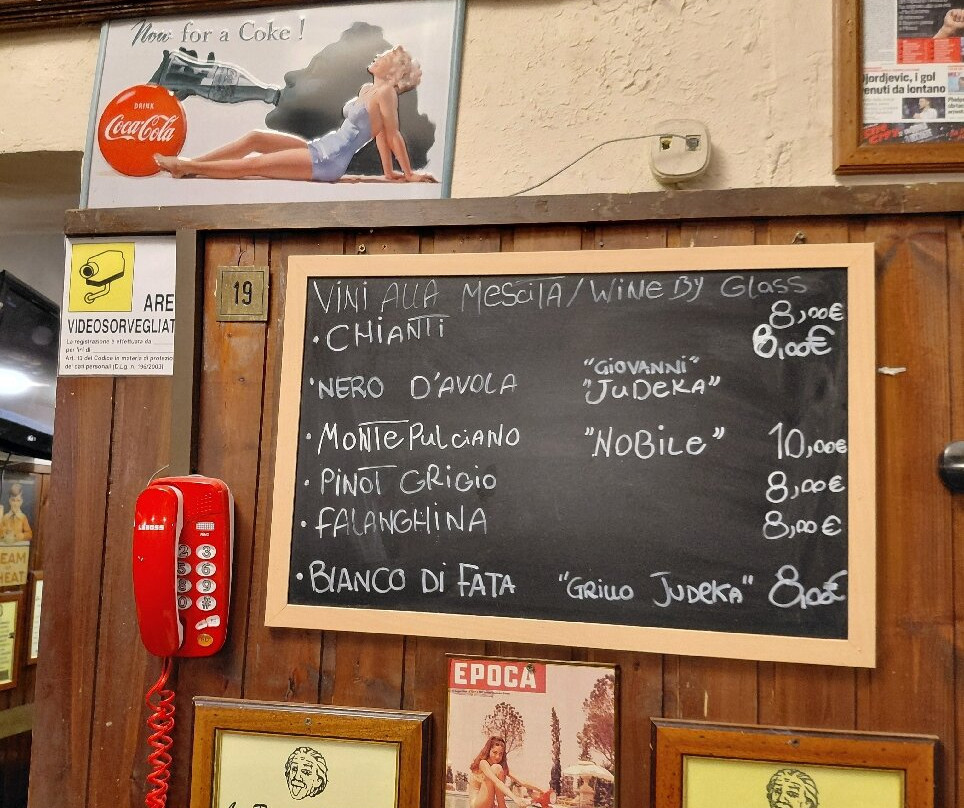 Now for a Coke !
DRINK
Coca-Cola
Djordjevic, i gol
venuti da lontano
ARE
VIDEOSORVEGLIAT
La registrazione è effettuata da
per fini di
Art. 13 del Codice in materia di protezio
dei dati personali (D.Lg. n. 196/2003)
19
VINI ALLA MESCITA/WINE BY GLASS
• CHIANTI 8,00€
8,00€
"GIOVANNI"
• NERO D'AVOLA "JUDEKA"
• MONTEPULCIANO "NOBILE" 10,00€
• PINOT GRIGIO 8,00€
• FALANGHINA 8,00€
• BIANCO DI FATA "GRILLO JUDEKA" 8,00€
2 3
5 6
8 9
0 #
EAM
HEAT
EPOCA